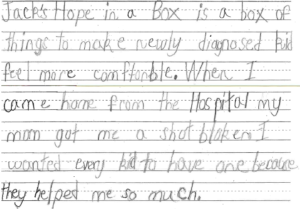 Jack's Hope in a Box is a box of
things to make newly diagnosed kid
feel more comftorble. When I
came home from the Hospital my
mom got me a shot bloker. I
wanted every kid to have one because
they helped me so much.